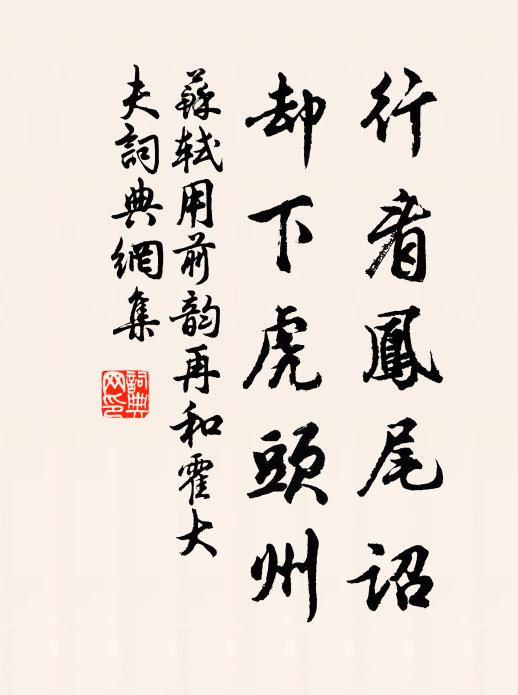 行看鳳尾詔
却下虎頭州
蘇軾用前韵再和霍大
夫詞典網集
詞典
网印